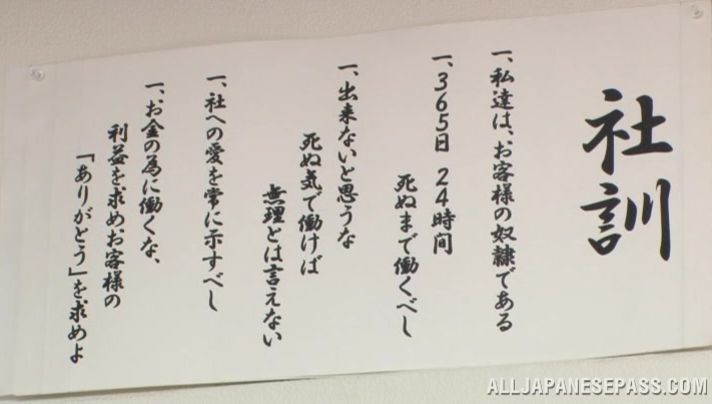 社訓
一、私達は、お客様の奴隷である
一、365日 24時間
死ぬまで働くべし
一、出来ないと思うな
死ぬ気で働けば
無理とは言えない
一、社への愛を常に示すべし
一、お金の為に働くな、
利益を求めお客様の
「ありがとう」を求めよ
ALLJAPANESEPASS.COM